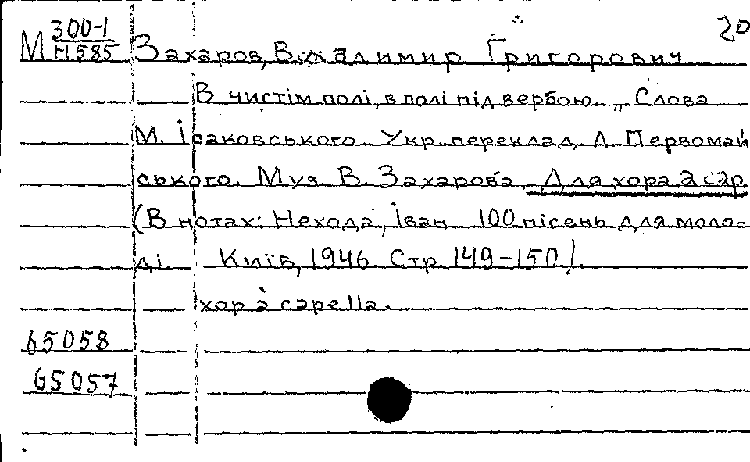 20
М 300-1
Н585 Захаров, Володимир Григорович
В чистім полі, в полі під вербою... Слова
М. Ісаковського. Укр. переклад Л. Первомай
ського. Муз. В. Захарова. Для хора a cap.
(В нотах: Нехода, Іван. 100 пісень для моло-
ді. Київ, 1946. Стр. 149-150).
хор a capella.
65058
65057